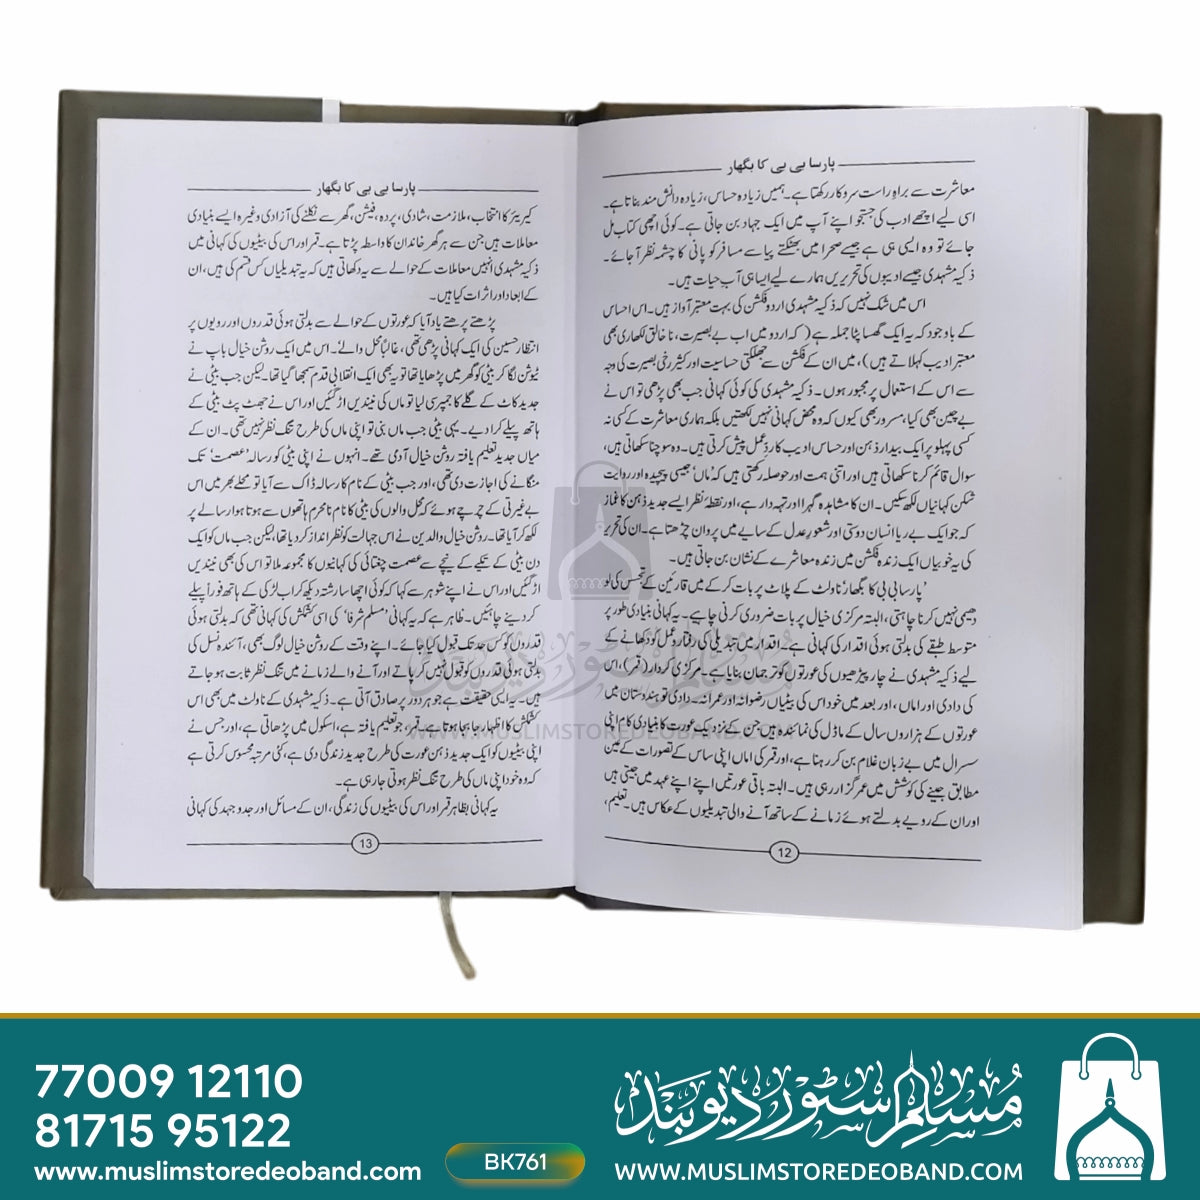 پارسا بی بی کا بگھار
معاشرت سے براہِ راست سروکار رکھتا ہے۔ ہمیں زیادہ حساس، زیادہ دانش مند بناتا ہے۔
اسی لیے اچھے ادب کی جستجو اپنے آپ میں ایک جہاد بن جاتی ہے۔ کوئی اچھی کتاب مل
جائے تو وہ ایسی ہی ہے جیسے صحرا میں بھٹکتے پیاسے مسافر کو پانی کا چشمہ نظر آجائے۔
ذکیہ مشہدی جیسے ادیبوں کی تحریریں ہمارے لیے ایسا ہی آبِ حیات ہیں۔
اس میں شک نہیں کہ ذکیہ مشہدی اردو فکشن کی بہت معتبر آواز ہیں۔ اس احساس
کے باوجود کہ یہ ایک گھسا پٹا جملہ ہے (کہ اردو میں اب بے بصیرت، ناخالق لکھاری بھی
معتبر ادیب کہلاتے ہیں)، میں ان کے فکشن سے جھلکتی حساسیت اور کثیر رخی بصیرت کی وجہ
سے اس کے استعمال پر مجبور ہوں۔ ذکیہ مشہدی کی کوئی کہانی جب بھی پڑھی تو اس نے
بے چین بھی کیا، مسرور بھی کیوں کہ وہ محض کہانی نہیں لکھتیں بلکہ ہماری معاشرت کے کسی نہ
کسی پہلو پر ایک بیدار ذہن اور حساس ادیب کا ردِعمل پیش کرتی ہیں۔ وہ سوچنا سکھاتی ہیں،
سوال قائم کرنا سکھاتی ہیں اور اتنی ہمت اور حوصلہ رکھتی ہیں کہ 'ماں' جیسی پیچیدہ اور روایت
شکن کہانیاں لکھ سکیں۔ ان کا مشاہدہ گہرا اور تہہ دار ہے، اور نقطۂ نظر ایسے جدید ذہن کا غماز
کہ جو ایک بے ریا انسان دوستی اور شعورِ عدل کے سایے میں پروان چڑھتا ہے۔ ان کی تحریر
کی یہ خوبیاں ایک زندہ فکشن میں زندہ معاشرے کے نشان بن جاتی ہیں۔
'پارسا بی بی کا بگھار' ناولٹ کے پلاٹ پر بات کرکے میں قارئین کے تجسس کی لو
دھیمی نہیں کرنا چاہتی، البتہ مرکزی خیال پر بات ضروری کرنی چاہیے۔ یہ کہانی بنیادی طور پر
متوسط طبقے کی بدلتی ہوئی اقدار کی کہانی ہے۔ اقدار میں تبدیلی کی رفتار و عمل کو دکھانے کے
لیے ذکیہ مشہدی نے چار پیڑھیوں کی عورتوں کو ترجمان بنایا ہے۔ مرکزی کردار (قمر)، اس
کی دادی اور اماں، اور بعد میں خود اس کی بیٹیاں رضوانہ اور عمرانہ۔ دادی تو ہندوستان میں
عورتوں کے ہزاروں سال کے ماڈل کی نمائندہ ہیں جن کے نزدیک عورت کا بنیادی کام اپنی
سسرال میں بے زبان غلام بن کر رہنا ہے، اور قمر کی اماں اپنی ساس کے تصورات کے عین
مطابق جینے کی کوشش میں عمر گزار رہی ہیں۔ البتہ باقی عورتیں اپنے اپنے عہد میں جیتی ہیں
اور ان کے رویے بدلتے ہوئے زمانے کے ساتھ آنے والی تبدیلیوں کے عکاس ہیں۔ تعلیم،
12
پارسا بی بی کا بگھار
کیریئر کا انتخاب، ملازمت، شادی، پردہ، فیشن، گھر سے نکلنے کی آزادی وغیرہ ایسے بنیادی
معاملات ہیں جن سے ہر گھر خاندان کا واسطہ پڑتا ہے۔ قمر اور اس کی بیٹیوں کی کہانی میں
ذکیہ مشہدی انہیں معاملات کے حوالے سے یہ دکھاتی ہیں کہ یہ تبدیلیاں کس قسم کی ہیں، ان
کے ابعاد اور اثرات کیا ہیں۔
پڑھتے پڑھتے یاد آیا کہ عورتوں کے حوالے سے بدلتی ہوئی قدروں اور رویوں پر
انتظار حسین کی ایک کہانی پڑھی تھی، غالباً 'محل والے'۔ اس میں ایک روشن خیال باپ نے
ٹیوشن لگا کر بیٹی کو گھر میں پڑھایا تھا تو یہ بھی ایک انقلابی قدم سمجھا گیا تھا۔ لیکن جب بیٹی نے
جدید کاٹ کے گلے کا جمپر سی لیا تو ماں کی نیندیں اڑ گئیں اور اس نے جھٹ پٹ بیٹی کے
ہاتھ پیلے کرا دیے۔ یہی بیٹی جب ماں بنی تو اپنی ماں کی طرح تنگ نظر نہیں تھی۔ ان کے
میاں جدید تعلیم یافتہ روشن خیال آدمی تھے۔ انہوں نے اپنی بیٹی کو رسالہ 'عصمت' تک
منگانے کی اجازت دی تھی، اور جب بیٹی کے نام کا رسالہ ڈاک سے آیا تو محلے بھر میں اس
بے غیرتی کے چرچے ہوئے کہ محل والوں کی بیٹی کا نام نامحرم ہاتھوں سے ہوتا ہوا رسالے پر
لکھ کر آیا تھا۔ روشن خیال والدین نے اس جہالت کو نظر انداز کر دیا تھا، لیکن جب ماں کو ایک
دن بیٹی کے تکیے کے نیچے سے عصمت چغتائی کی کہانیوں کا مجموعہ ملا تو اس کی بھی نیندیں
اڑ گئیں اور اس نے اپنے شوہر سے کہا کہ کوئی اچھا سا رشتہ دیکھ کر اب لڑکی کے ہاتھ فوراً پیلے
کر دینے چاہئیں۔ ظاہر ہے کہ یہ کہانی 'مسلم شرفا' کی اسی کشمکش کی کہانی تھی کہ بدلتی ہوئی
قدروں کو کس حد تک قبول کیا جائے۔ اپنے وقت کے روشن خیال لوگ بھی، آئندہ نسل کی
بدلتی ہوئی قدروں کو قبول نہیں کر پاتے اور آنے والے زمانے میں تنگ نظر ثابت ہو جاتے
ہیں۔ یہ ایسی حقیقت ہے جو ہر دور پر صادق آتی ہے۔ ذکیہ مشہدی کے ناولٹ میں بھی اس
کشمکش کا اظہار جابجا ہوتا ہے۔ قمر، جو تعلیم یافتہ ہے، اسکول میں پڑھاتی ہے، اور جس نے
اپنی بیٹیوں کو ایک جدید ذہن عورت کی طرح جدید زندگی دی ہے، کئی مرتبہ محسوس کرتی ہے
کہ وہ خود اپنی ماں کی طرح تنگ نظر ہوتی جا رہی ہے۔
یہ کہانی بظاہر قمر اور اس کی بیٹیوں کی زندگی، ان کے مسائل اور جدوجہد کی کہانی
13
مسلم سٹور دیوبند
WWW.MUSLIMSTOREDEOBAND.COM
77009 12110
81715 95122
www.muslimstoredeoband.com
BK761
مسلم سٹور دیوبند
WWW.MUSLIMSTOREDEOBAND.COM